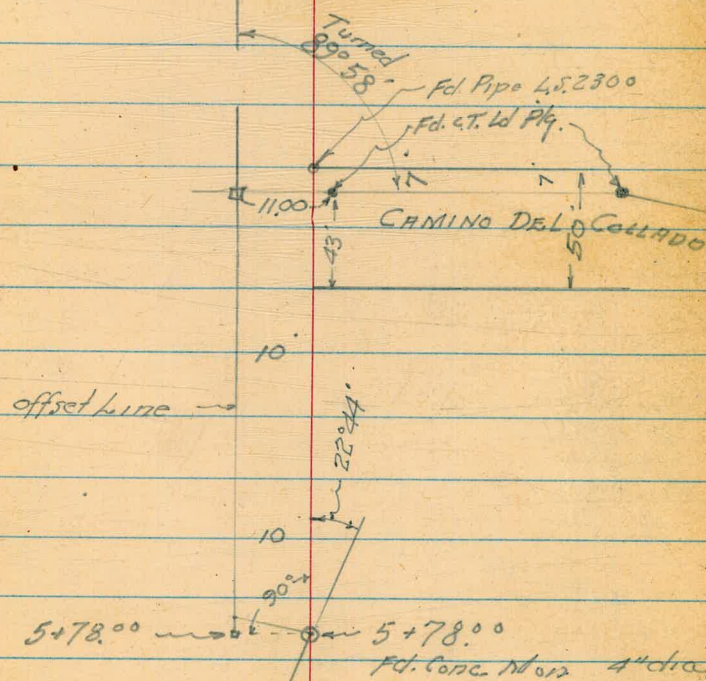 Turned
89° 58'
Fd. Pipe L.S. 2300
Fd. C.T. Ld Plg.
7'
7'
11.00
CAMINO DEL COLLADO
43'
50'
10'
offset Line
22° 44'
10
90°
5+78.00
5+78.00
Fd. Conc. Mon 4" dia